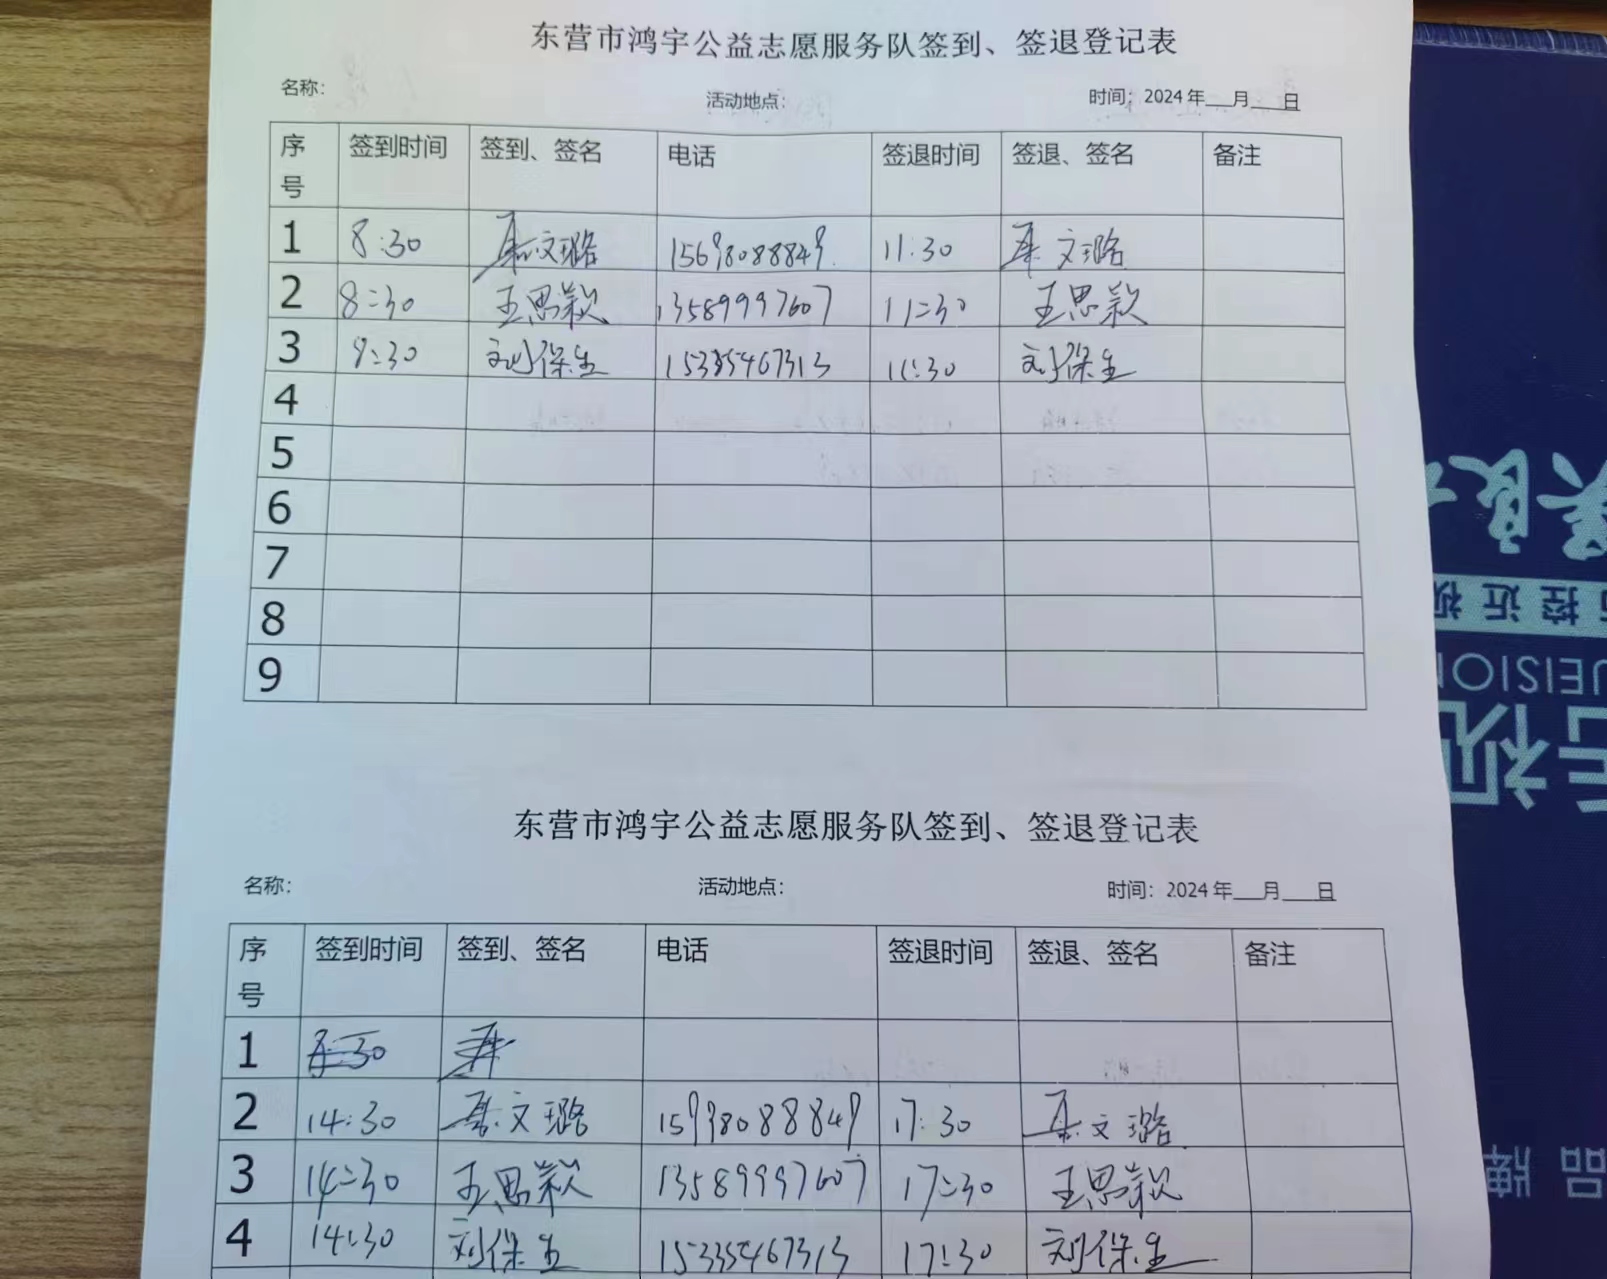 东营市鸿宇公益志愿服务队签到、签退登记表
名称： 活动地点： 时间：2024年___月___日
序号 签到时间 签到、签名 电话 签退时间 签退、签名 备注
1 8:30 文璐 15698088849 11:30 文璐
2 8:30 王思颖 13589997607 11:30 王思颖
3 8:30 刘保生 15335467313 11:30 刘保生
4
5
6
7
8
9
东营市鸿宇公益志愿服务队签到、签退登记表
名称： 活动地点： 时间：2024年___月___日
序号 签到时间 签到、签名 电话 签退时间 签退、签名 备注
1
2 14:30 文璐 15998088849 17:30 文璐
3 14:30 王思颖 13589997607 17:30 王思颖
4 14:30 刘保生 15335467313 17:30 刘保生
控近视
视
品牌